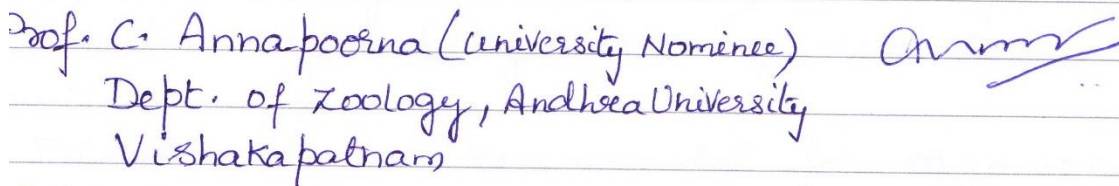 Prof. C. Annapoorna (University Nominee)
Dept. of Zoology, Andhra University
Vishakapatnam